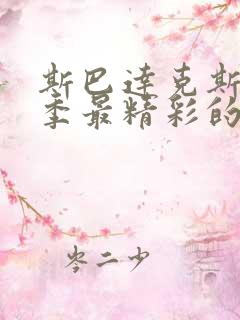 斯巴达克斯
季最精彩的
岑二少